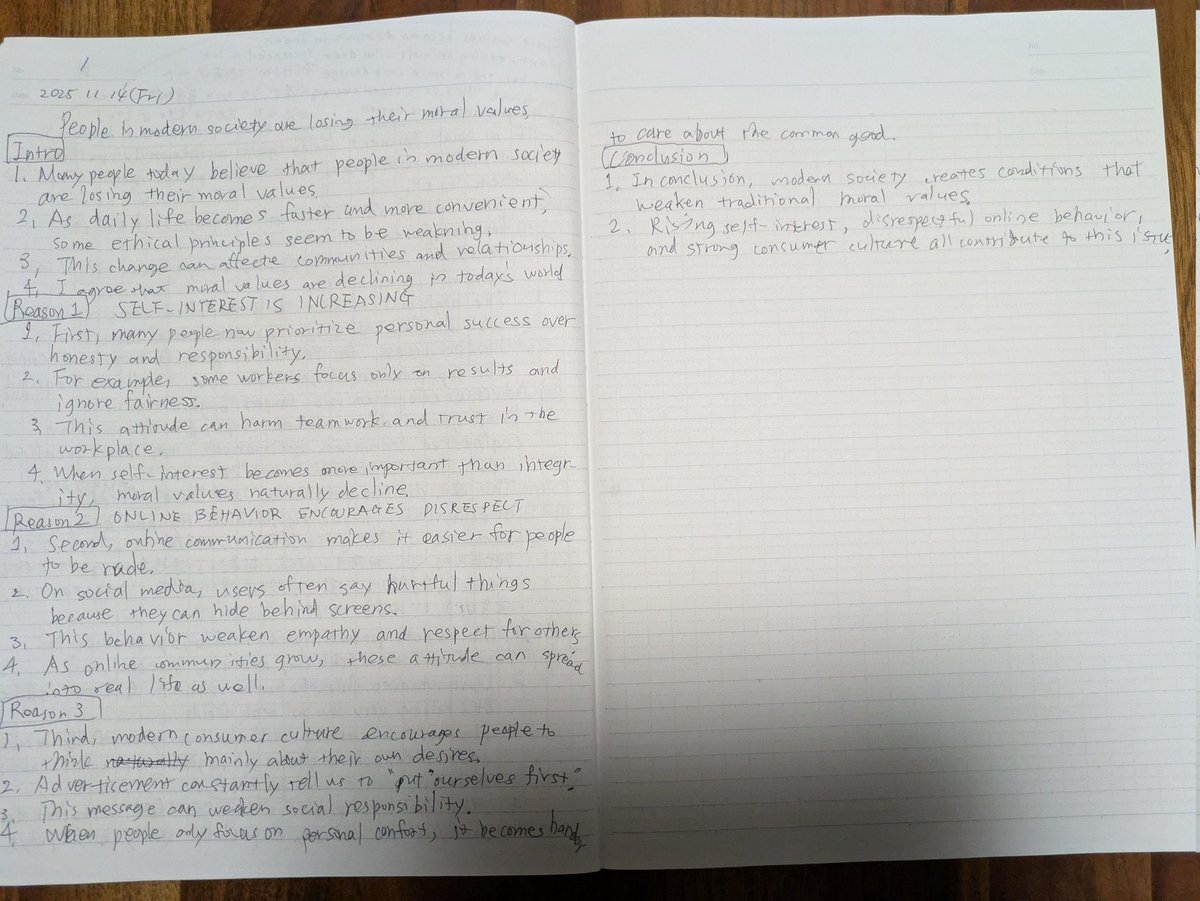 1
2025 11 14 (Fri)
People in modern society are losing their moral values.
Intro
1. Many people today believe that people in modern society
are losing their moral values.
2, As daily life becomes faster and more convenient,
some ethical principles seem to be weakning.
3, This change can affecte communities and relationships.
4, I agree that moral values are declining in today's world
Reason 1 SELF-INTEREST IS INCREASING
1, First, many people now prioritize personal success over
honesty and responsibility.
2. For example, some workers focus only on results and
ignore fairness.
3, This attitude can harm teamwork and trust in the
workplace.
4. When self-interest becomes more important than integr-
ity, moral values naturally decline.
Reason 2 ONLINE BEHAVIOR ENCOURAGES DISRESPECT
1, Second, online communication makes it easier for people
to be rude.
2. On social media, users often say hurtful things
because they can hide behind screens.
3, This behavior weaken empathy and respect for others
4, As online communities grow, these attitude can spread
into real life as well.
Reason 3
1, Third, modern consumer culture encourages people to
think naturally mainly about their own desires.
2. Advertisement constantly tell us to "put "ourselves first."
3. This message can weaken social responsibility.
4. When people only focus on personal confort, it becomes harder
to care about the common good.
Conclusion
1. In conclusion, modern society creates conditions that
weaken traditional moral values.
2. Rising self-interest, disrespectful online behavior,
and strong consumer culture all contribute to this issue,
No.
Date